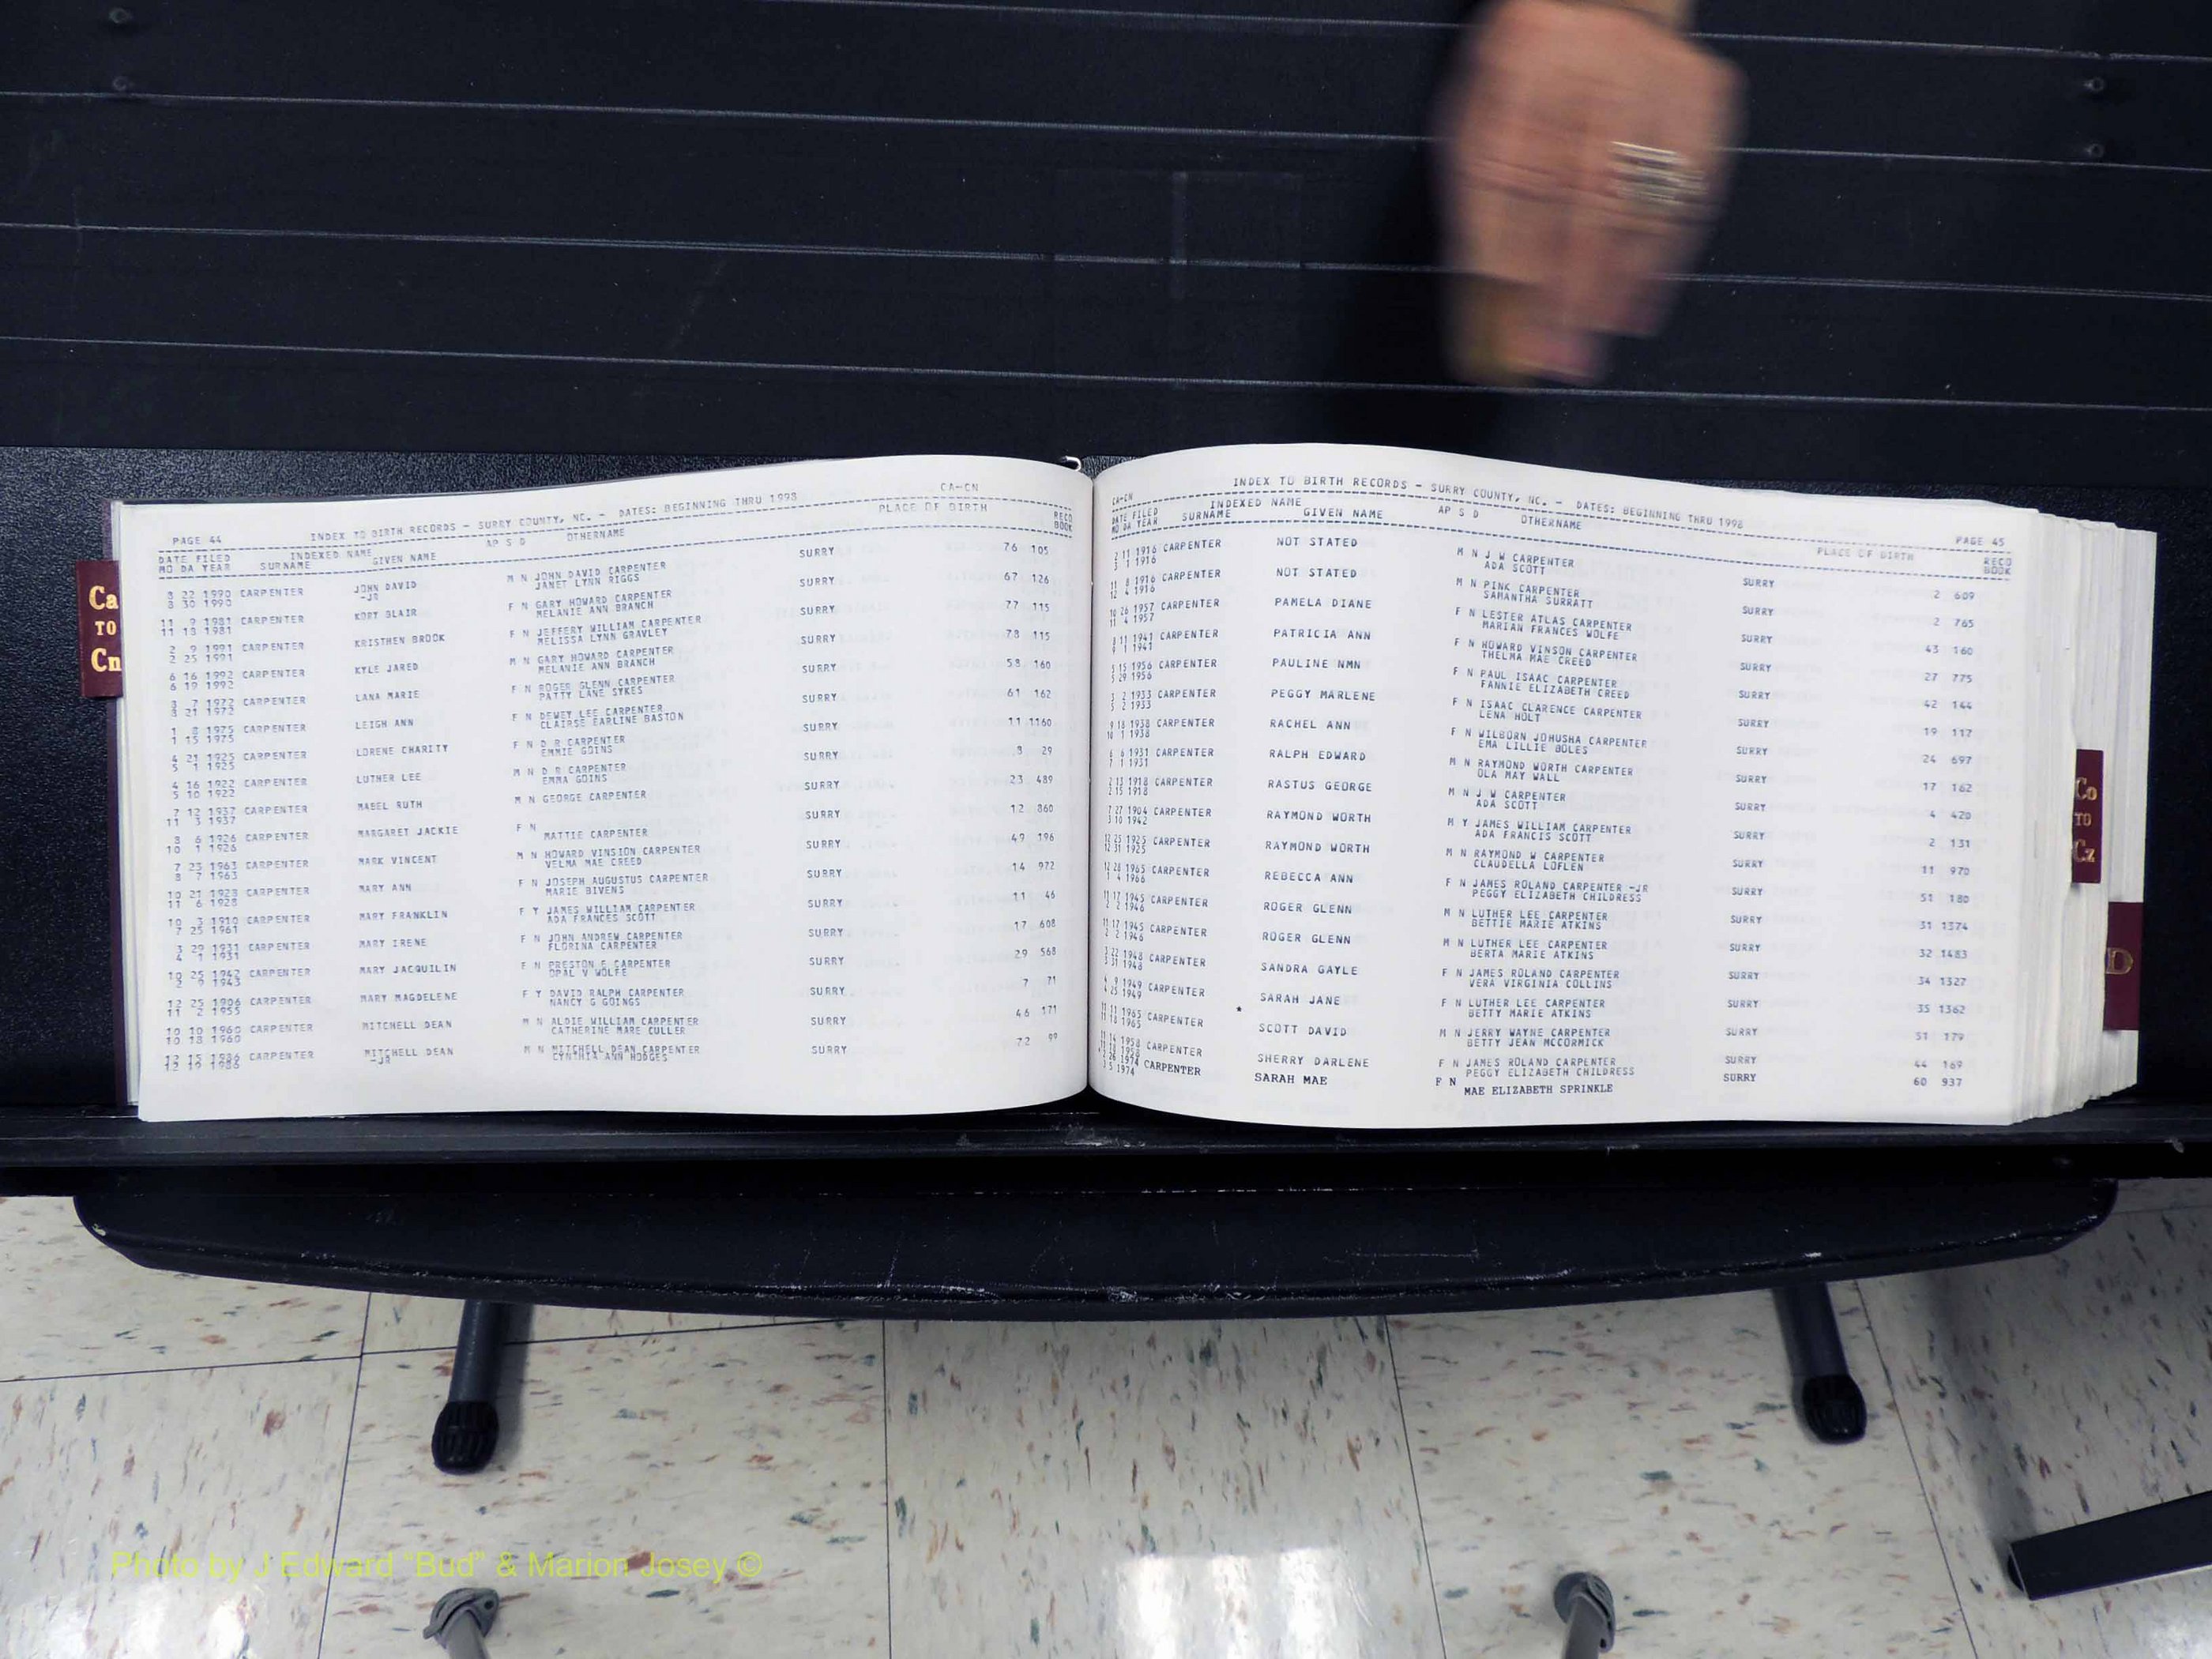 Ca
TO
Cn
CA-CN
PAGE 44 INDEX TO BIRTH RECORDS - SURRY COUNTY, NC. - DATES: BEGINNING THRU 1998
DATE FILED INDEXED NAME AP S D OTHERNAME PLACE OF BIRTH RECO
MO DA YEAR SURNAME GIVEN NAME BOOK
8 22 1990 CARPENTER JOHN DAVID M N JOHN DAVID CARPENTER SURRY 76 105
8 30 1990 -JR JANET LYNN RIGGS
11 9 1981 CARPENTER KORY BLAIR F N GARY HOWARD CARPENTER SURRY 67 126
11 18 1981 MELANIE ANN BRANCH
2 9 1991 CARPENTER KRISTHEN BROOK F N JEFFERY WILLIAM CARPENTER SURRY 77 115
2 25 1991 MELISSA LYNN GRAVLEY
6 16 1992 CARPENTER KYLE JARED M N GARY HOWARD CARPENTER SURRY 78 115
6 19 1992 MELANIE ANN BRANCH
3 7 1972 CARPENTER LANA MARIE F N ROGER GLENN CARPENTER SURRY 58 160
3 21 1972 PATTY LANE SYKES
1 8 1975 CARPENTER LEIGH ANN F N DEWEY LEE CARPENTER SURRY 61 162
1 15 1975 CLAIRSE EARLINE BASTON
4 21 1925 CARPENTER LORENE CHARITY F N D R CARPENTER SURRY 11 1160
5 1 1925 EMMIE GOINS
4 16 1922 CARPENTER LUTHER LEE M N D R CARPENTER SURRY 8 29
5 10 1922 EMMA GOINS
7 12 1937 CARPENTER MABEL RUTH M N GEORGE CARPENTER SURRY 23 489
11 3 1937
8 6 1926 CARPENTER MARGARET JACKIE F N SURRY 12 860
10 1 1926 MATTIE CARPENTER
7 23 1963 CARPENTER MARK VINCENT M N HOWARD VINSION CARPENTER SURRY 49 196
8 7 1963 VELMA MAE CREED
10 21 1928 CARPENTER MARY ANN F N JOSEPH AUGUSTUS CARPENTER SURRY 14 972
11 6 1928 MARIE BIVENS
10 3 1910 CARPENTER MARY FRANKLIN F Y JAMES WILLIAM CARPENTER SURRY 11 46
7 25 1961 ADA FRANCES SCOTT
3 29 1931 CARPENTER MARY IRENE F N JOHN ANDREW CARPENTER SURRY 17 608
4 1 1931 FLORINA CARPENTER
10 25 1942 CARPENTER MARY JACQUILIN F N PRESTON E CARPENTER SURRY 29 568
2 9 1943 OPAL V WOLFE
12 25 1906 CARPENTER MARY MAGDELENE F Y DAVID RALPH CARPENTER SURRY 7 71
11 2 1955 NANCY G GOINGS
10 10 1960 CARPENTER MITCHELL DEAN M N ALDIE WILLIAM CARPENTER SURRY 46 171
10 18 1960 CATHERINE MARE CULLER
12 15 1986 CARPENTER MITCHELL DEAN M N MITCHELL DEAN CARPENTER SURRY 72 99
12 19 1986 -JR CYNTHIA ANN HODGES
CA-CN INDEX TO BIRTH RECORDS - SURRY COUNTY, NC. - DATES: BEGINNING THRU 1998 PAGE 45
DATE FILED INDEXED NAME AP S D OTHERNAME PLACE OF BIRTH RECO
MO DA YEAR SURNAME GIVEN NAME BOOK
2 11 1916 CARPENTER NOT STATED M N J W CARPENTER SURRY 2 609
3 1 1916 ADA SCOTT
11 8 1916 CARPENTER NOT STATED M N PINK CARPENTER SURRY 2 765
12 4 1916 SAMANTHA SURRATT
10 26 1957 CARPENTER PAMELA DIANE F N LESTER ATLAS CARPENTER SURRY 43 160
11 4 1957 MARIAN FRANCES WOLFE
8 11 1941 CARPENTER PATRICIA ANN F N HOWARD VINSON CARPENTER SURRY 27 775
9 1 1941 THELMA MAE CREED
5 15 1956 CARPENTER PAULINE NMN F N PAUL ISAAC CARPENTER SURRY 42 144
5 29 1956 FANNIE ELIZABETH CREED
3 2 1933 CARPENTER PEGGY MARLENE F N ISAAC CLARENCE CARPENTER SURRY 19 117
5 2 1933 LENA HOLT
9 18 1938 CARPENTER RACHEL ANN F N WILBORN JOHUSHA CARPENTER SURRY 24 697
10 1 1938 EMA LILLIE BOLES
6 6 1931 CARPENTER RALPH EDWARD M N RAYMOND WORTH CARPENTER SURRY 17 162
7 1 1931 OLA MAY WALL
2 13 1918 CARPENTER RASTUS GEORGE M N J W CARPENTER SURRY 4 420
2 15 1918 ADA SCOTT
7 27 1904 CARPENTER RAYMOND WORTH M Y JAMES WILLIAM CARPENTER SURRY 2 131
3 10 1942 ADA FRANCIS SCOTT
12 25 1925 CARPENTER RAYMOND WORTH M N RAYMOND W CARPENTER SURRY 11 970
12 31 1925 CLAUDELLA LOFLEN
12 28 1965 CARPENTER REBECCA ANN F N JAMES ROLAND CARPENTER -JR SURRY 51 180
1 4 1966 PEGGY ELIZABETH CHILDRESS
11 17 1945 CARPENTER ROGER GLENN M N LUTHER LEE CARPENTER SURRY 31 1574
2 2 1946 BETTIE MARIE ATKINS
11 17 1945 CARPENTER ROGER GLENN M N LUTHER LEE CARPENTER SURRY 32 1483
2 2 1946 BERTA MARIE ATKINS
3 22 1948 CARPENTER SANDRA GAYLE F N JAMES ROLAND CARPENTER SURRY 34 1327
3 31 1948 VERA VIRGINIA COLLINS
4 9 1949 CARPENTER SARAH JANE F N LUTHER LEE CARPENTER SURRY 35 1362
4 25 1949 BETTY MARIE ATKINS
11 11 1965 CARPENTER * SCOTT DAVID M N JERRY WAYNE CARPENTER SURRY 51 179
11 18 1965 BETTY JEAN MCCORMICK
11 14 1958 CARPENTER SHERRY DARLENE F N JAMES ROLAND CARPENTER SURRY 44 169
11 18 1958 PEGGY ELIZABETH CHILDRESS
2 26 1974 CARPENTER SARAH MAE F N SURRY 60 937
3 5 1974 MAE ELIZABETH SPRINKLE
Co
TO
Cz
D
Photo by J Edward "Bud" & Marion Josey ©